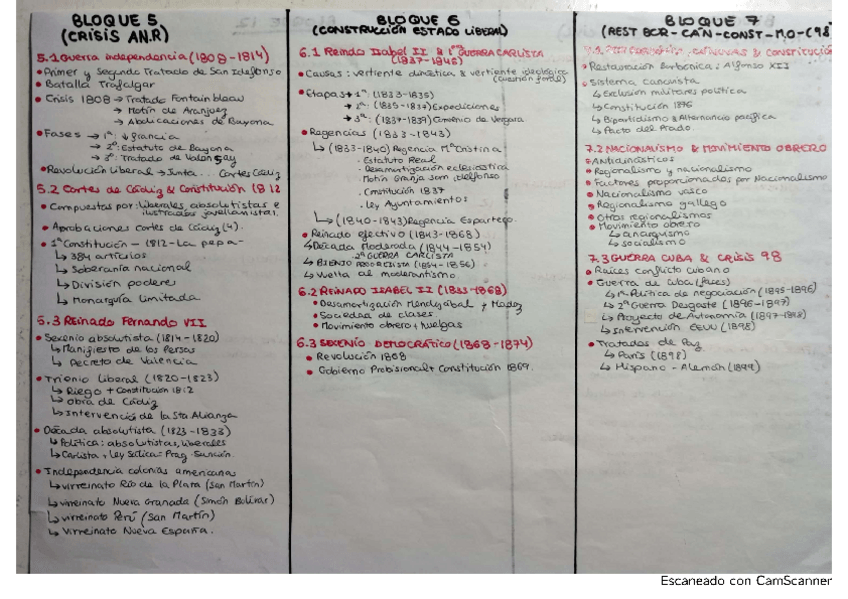 BLOQUE 5
(CRISIS AN.R)
5.1 Guerra independencia (1808-1814)
• Primer y Segundo Tratado de San Ildefonso
• Batalla Trafalgar
• Crisis 1808 → Tratado Fontainbleau
→ Motín de Aranjuez
→ Abdicaciones de Bayona
• Fases → 1ª: ↓ francia
→ 2ª: Estatuto de Bayona
→ 3ª: Tratado de Valençay
• Revolución Liberal → Junta... Cortes Cádiz
5.2 Cortes de Cádiz & Constitución 1812
• Compuestas por: liberales, absolutistas e
ilustrados jovellanistas.
• Aprobaciones cortes de Cádiz (4).
• 1ª Constitución - 1812 - La pepa -
↳ 384 artículos
↳ Soberanía nacional
↳ División poderes
↳ Monarquía limitada
5.3 Reinado Fernando VII
• Sexenio absolutista (1814-1820)
↳ Manifiesto de los Persas
↳ Decreto de Valencia
• Trienio Liberal (1820-1823)
↳ Riego + Constitución 1812
↳ Obra de Cádiz
↳ Intervención de la Sta Alianza
• Década absolutista (1823-1833)
↳ Política: absolutistas, liberales
↳ Carlista, Ley Sálica: Prag. Sanción.
• Independencia colonias americana
↳ virreinato Río de la Plata (San Martín)
↳ virreinato Nueva Granada (Simón Bolívar)
↳ virreinato Perú (San Martín)
↳ Virreinato Nueva España.
BLOQUE 6
(CONSTRUCCIÓN ESTADO LIBERAL)
6.1 Reinado Isabel II & 1ª GUERRA CARLISTA
(1837-1843)
• Causas: vertiente dinástica & vertiente ideológica
• Etapas → 1ª: (1833-1835)
→ 2ª: (1835-1837) Expediciones
→ 3ª: (1837-1839) Convenio de Vergara
• Regencias (1833-1843)
↳ (1833-1840) Regencia Mª Cristina
· Estatuto Real
· Desamortización eclesiástica
· Motín Granja san ildefonso
· Constitución 1837
· Ley Ayuntamientos
↳ (1840-1843) Regencia Espartero
• Reinado efectivo (1843-1868)
↳ Década Moderada (1844-1854)
2ª GUERRA CARLISTA
↳ BIENIO PROGRESISTA (1854-1856)
↳ Vuelta al moderantismo
6.2 REINADO ISABEL II (1833-1868)
• Desamortización Mendizábal y Madoz
• Sociedad de clases
• Movimiento obrero + huelgas
6.3 SEXENIO DEMOCRÁTICO (1868-1874)
• Revolución 1868
• Gobierno Probisional + Constitución 1869.
BLOQUE 7
(REST BOR - CÁN - CONST - M.O - C98
CÁNOVAS & CONSTITUCIÓN
• Restauración Borbónica: Alfonso XII
• Sistema canovista
↳ Exclusión militares política
↳ Constitución 1876
↳ Bipartidismo & Alternancia pacífica
↳ Pacto del Prado.
7.2 NACIONALISMO & MOVIMIENTO OBRERO
• Antidinásticos
• Regionalismo y nacionalismo
• Factores proporcionados por Nacionalismo
• Nacionalismo vasco
• Regionalismo gallego
• Otros regionalismos
• Movimiento obrero
↳ anarquismo
↳ socialismo
7.3 GUERRA CUBA & CRISIS 98
• Raíces conflicto cubano
• Guerra de Cuba (fases)
↳ 1ª Política de negociación (1895-1896)
↳ 2ª Guerra Desgaste (1896-1897)
↳ Proyecto de Autonomía (1897-1898)
↳ Intervención EEUU (1898)
• Tratados de Paz
↳ París (1898)
↳ Hispano - Alemán (1899)
Escaneado con CamScanner